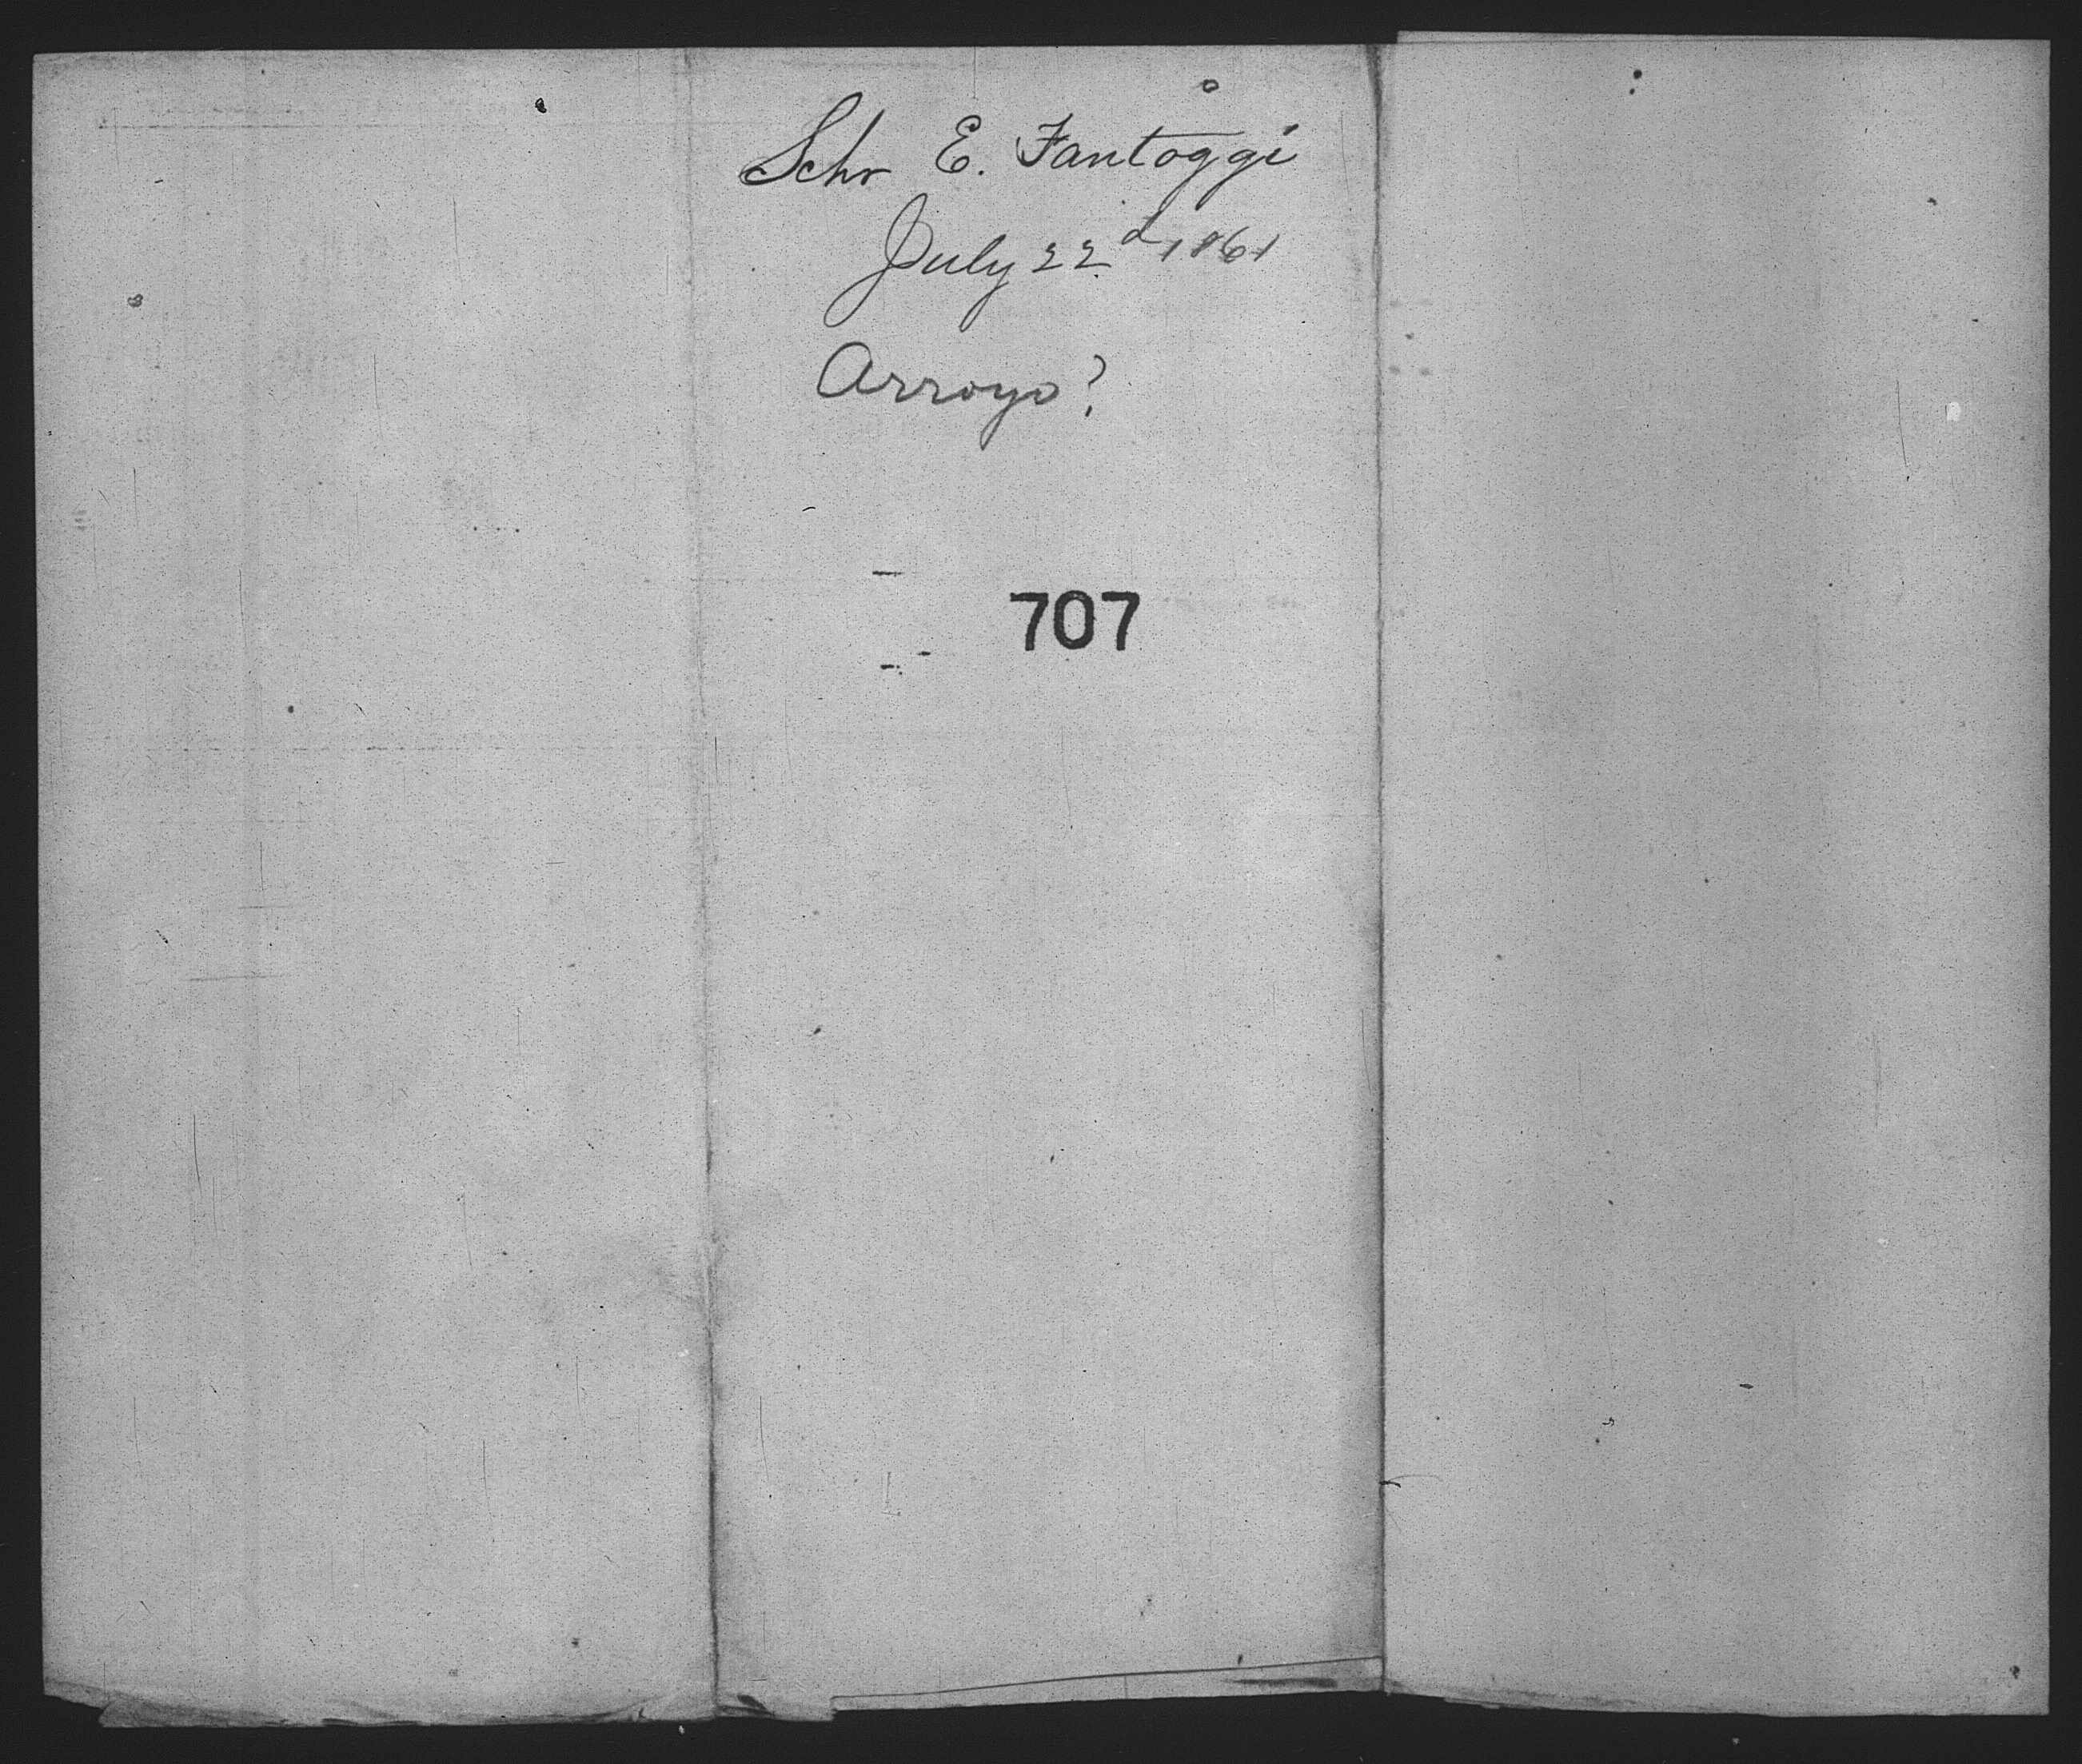 Schr E. Fantoggi
July 22d 1861
Arroyo?
707